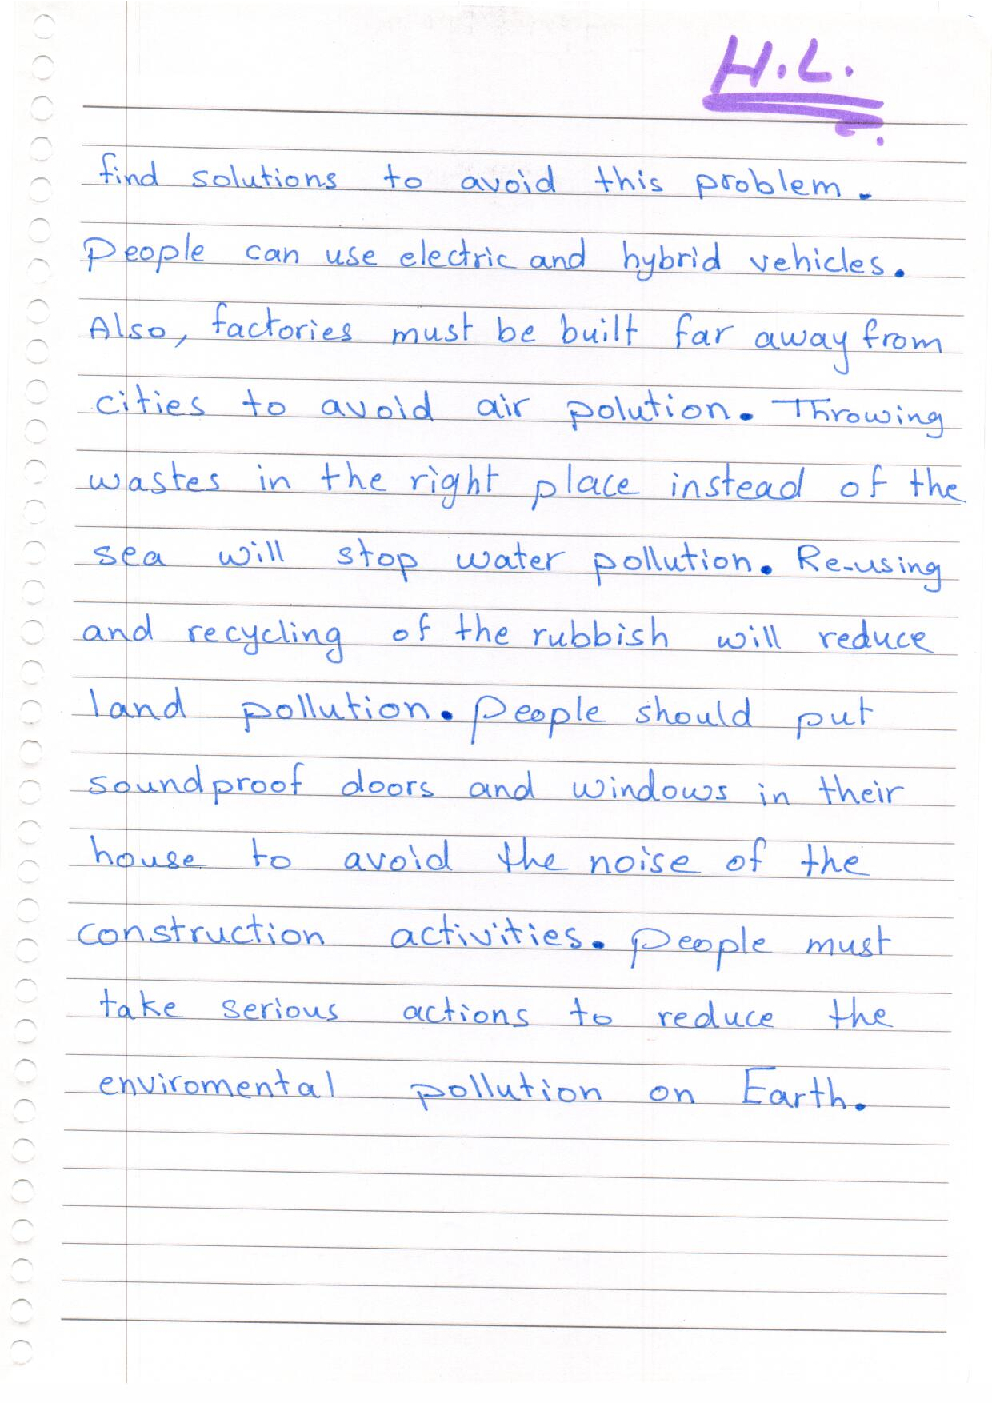 H.L.
find solutions to avoid this problem.
People can use electric and hybrid vehicles.
Also, factories must be built far away from
cities to avoid air polution. Throwing
wastes in the right place instead of the
sea will stop water pollution. Re-using
and recycling of the rubbish will reduce
land pollution. People should put
soundproof doors and windows in their
house to avoid the noise of the
construction activities. People must
take serious actions to reduce the
enviromental pollution on Earth.